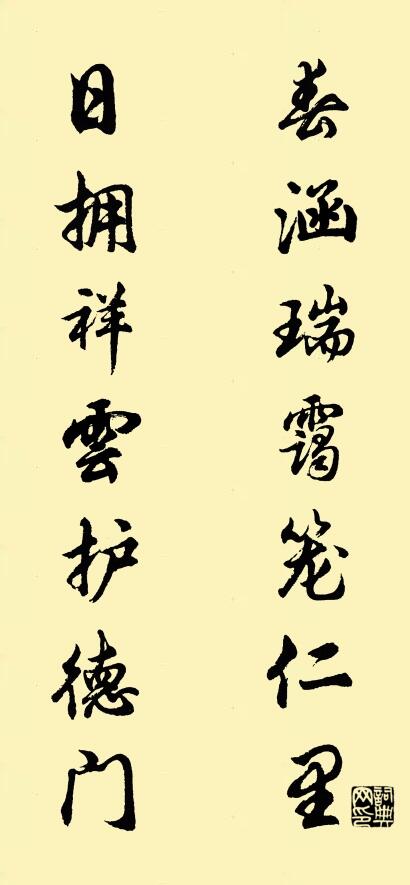 春涵瑞霭笼仁里
日拥祥雲护德门
詞典网印